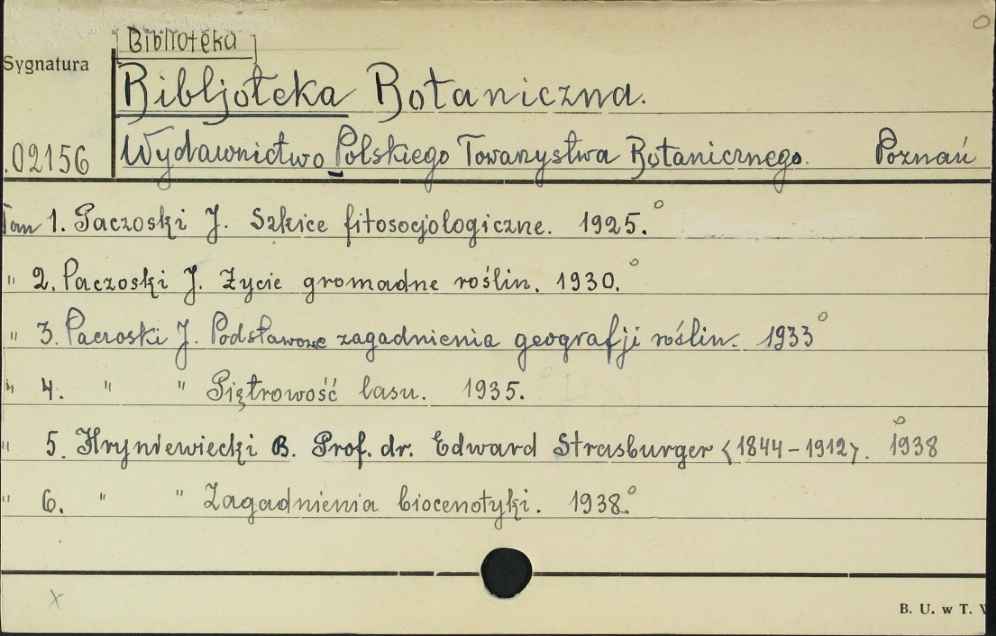 Biblioteka
Sygnatura
Bibljoteka Botaniczna.
.02156 Wydawnictwo Polskiego Towarzystwa Botanicznego. Poznań
Tom 1. Paczoski J. Szkice fitosocjologiczne. 1925.°
" 2. Paczoski J. Życie gromadne roślin. 1930.°
" 3. Paczoski J. Podstawowe zagadnienia geografji roślin. 1933°
" 4. " " Piętrowość lasu. 1935.
" 5. Hryniewiecki B. Prof. dr. Edward Strasburger <1844-1912>. 1938
" 6. " " Zagadnienia biocenotyki. 1938.°
x
B. U. w T.